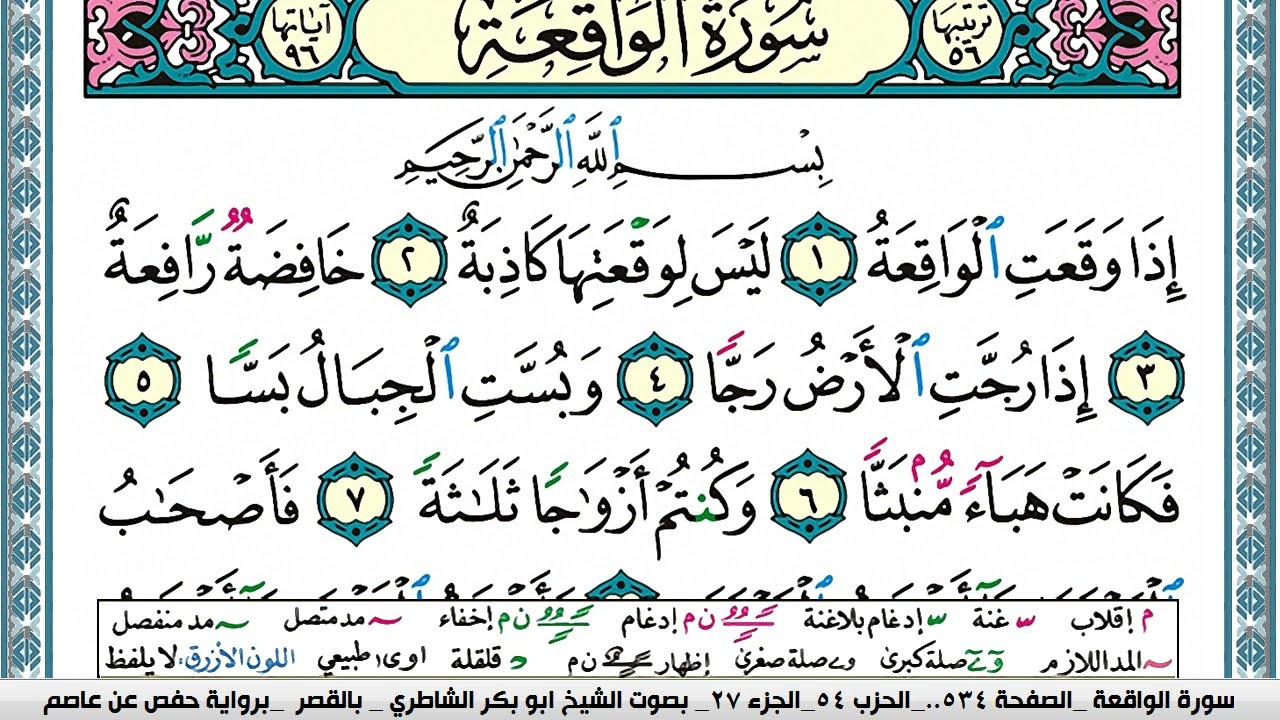 ترتيبها ٥٦ سورة الواقعة آياتها ٩٦
بِسْمِ ٱللَّهِ ٱلرَّحْمَٰنِ ٱلرَّحِيمِ
إِذَا وَقَعَتِ ٱلْوَاقِعَةُ ١ لَيْسَ لِوَقْعَتِهَا كَاذِبَةٌ ٢ خَافِضَةٌ رَّافِعَةٌ
٣ إِذَا رُجَّتِ ٱلْأَرْضُ رَجًّا ٤ وَبُسَّتِ ٱلْجِبَالُ بَسًّا ٥
فَكَانَتْ هَبَآءً مُّنۢبَثًّا ٦ وَكُنتُمْ أَزْوَٰجًا ثَلَٰثَةً ٧ فَأَصْحَٰبُ
م إقلاب غنة إدغام بلاغنة ن م إدغام ن م إخفاء مد متصل مد منفصل
المد اللازم صلة كبرى صلة صغرى إظهار ن م قلقلة طبيعي اللون الأزرق: لا يلفظ
سورة الواقعة _الصفحة ٥٣٤.._الحزب ٥٤_الجزء ٢٧_ بصوت الشيخ ابو بكر الشاطري _ بالقصر _برواية حفص عن عاصم